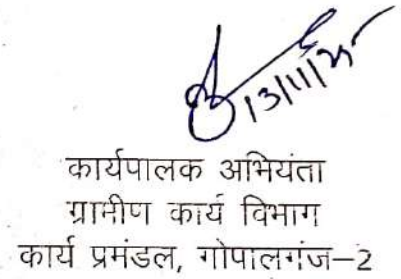 13/11/25
कार्यपालक अभियंता
ग्रामीण कार्य विभाग
कार्य प्रमंडल, गोपालगंज–2